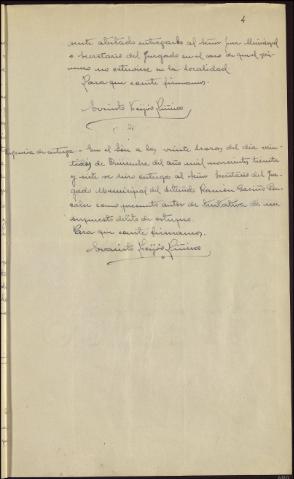 4
sente atestado entregarlo al Señor Juez Municipal
o Secretario del Juzgado en el caso de que el pri-
mero no estuviese en la localidad
Para que conste firmamos.
Evaristo Feijóo
de entrega - En el Sar a las veinte horas del día vein-
de Diciembre del año mil novecientos treinta
y siete se hizo entrega al Señor Secretario del Juz-
gado Municipal del detenido Ramón
como presunto autor de tentativa de un
supuesto delito de estupro.
Para que conste firmamos.
Evaristo Feijóo